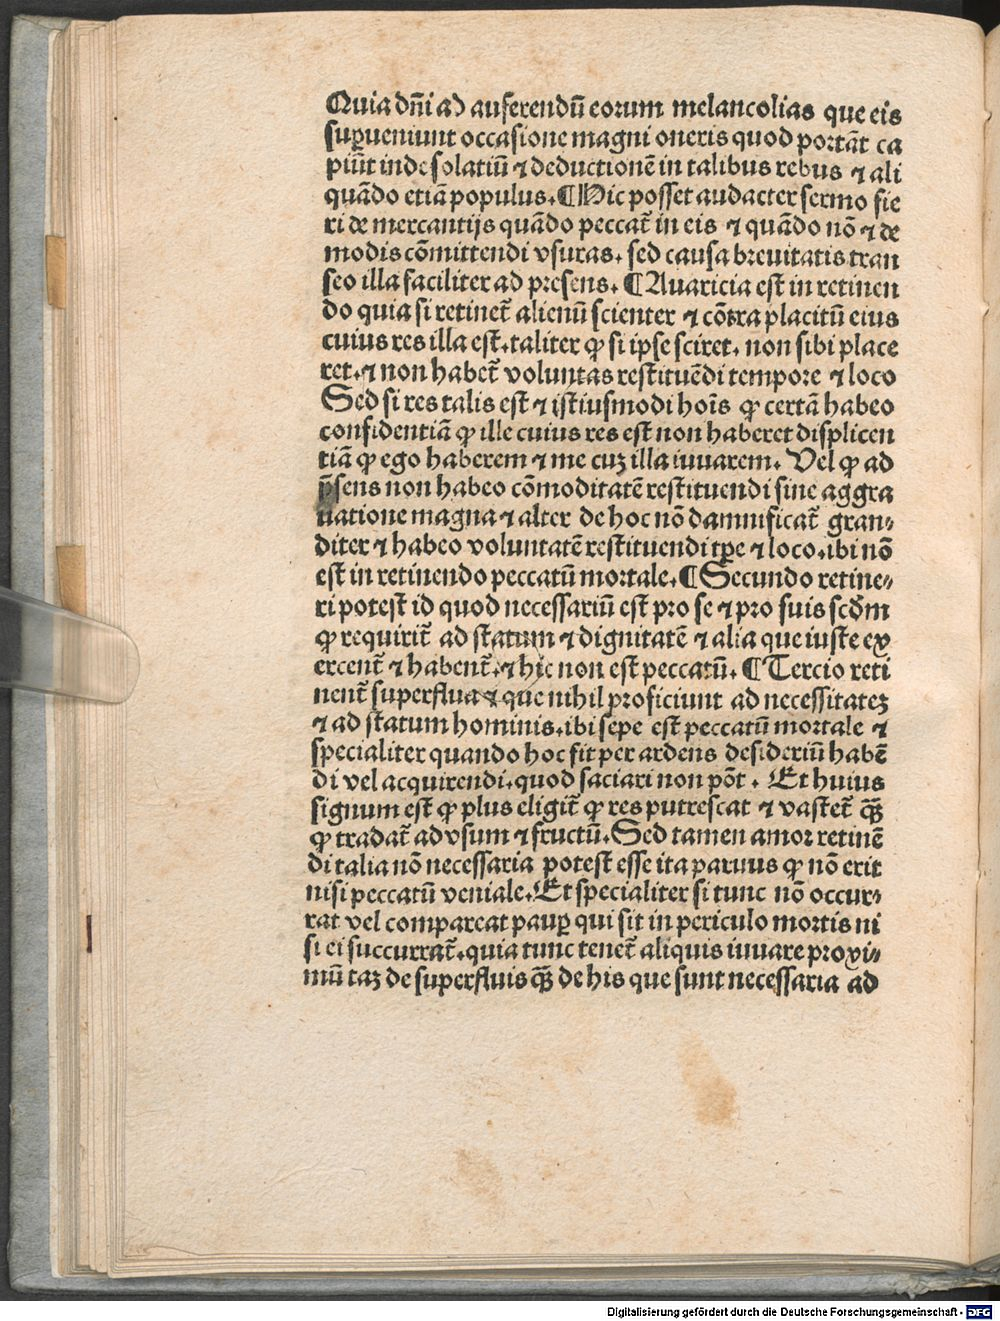 Quia dn̄i ad auferendū eorum melancolias que eis
suꝑueniunt occasione magni oneris quod portāt ca
piūt inde solatiū ⁊ deductionē in talibus rebus ⁊ ali
quādo etiā populus. ¶ Hic posset audacter sermo fie
ri de mercantijs quādo peccat̄ in eis ⁊ quādo nō ⁊ de
modis cōmittendi vsuras. sed causa breuitatis tran
seo illa faciliter ad presens. ¶ Auaricia est in retinen
do quia si retinet̄ alienū scienter ⁊ cōtra placitū eius
cuius res illa est. taliter ꝙ si ipse sciret. non sibi place
ret. ⁊ non habet̄ voluntas restituēdi tempore ⁊ loco
Sed si res talis est ⁊ istiusmodi hoīs ꝙ certā habeo
confidentiā ꝙ ille cuius res est non haberet displicen
tiā ꝙ ego haberem ⁊ me cuꝫ illa iuuarem. Vel ꝙ ad
p̄sens non habeo cōmoditatē restituendi sine aggra
uatione magna ⁊ alter de hoc nō damnificat̄ gran⸗
diter ⁊ habeo voluntatē restituendi tꝑe ⁊ loco. ibi nō
est in retinendo peccatū mortale. ¶ Secundo retine⸗
ri potest id quod necessariū est pro se ⁊ pro suis scd̄m
ꝙ requirit̄ ad statum ⁊ dignitatē ⁊ alia que iuste ex
ercent̄ ⁊ habent̄. ⁊ hic non est peccatū. ¶ Tercio reti
nent̄ superflua ⁊ que nihil proficiunt ad necessitateꝫ
⁊ ad statum hominis. ibi sepe est peccatū mortale ⁊
specialiter quando hoc fit per ardens desideriū habē
di vel acquirendi. quod saciari non pōt. Et huius
signum est ꝙ plus eligit̄ ꝙ res putrescat ⁊ vastet̄ qȝ̄
ꝙ tradat̄ ad vsum ⁊ fructū. Sed tamen amor retinē
di talia nō necessaria potest esse ita paruus ꝙ nō erit
nisi peccatū veniale. Et specialiter si tunc nō occur⸗
rat vel compareat pauꝑ qui sit in periculo mortis ni
si ei succurrat̄. quia tunc tenet̄ aliquis iuuare proxi⸗
mū taꝫ de superfluis qȝ̄ de his que sunt necessaria ad
Digitalisierung gefördert durch die Deutsche Forschungsgemeinschaft - DFG